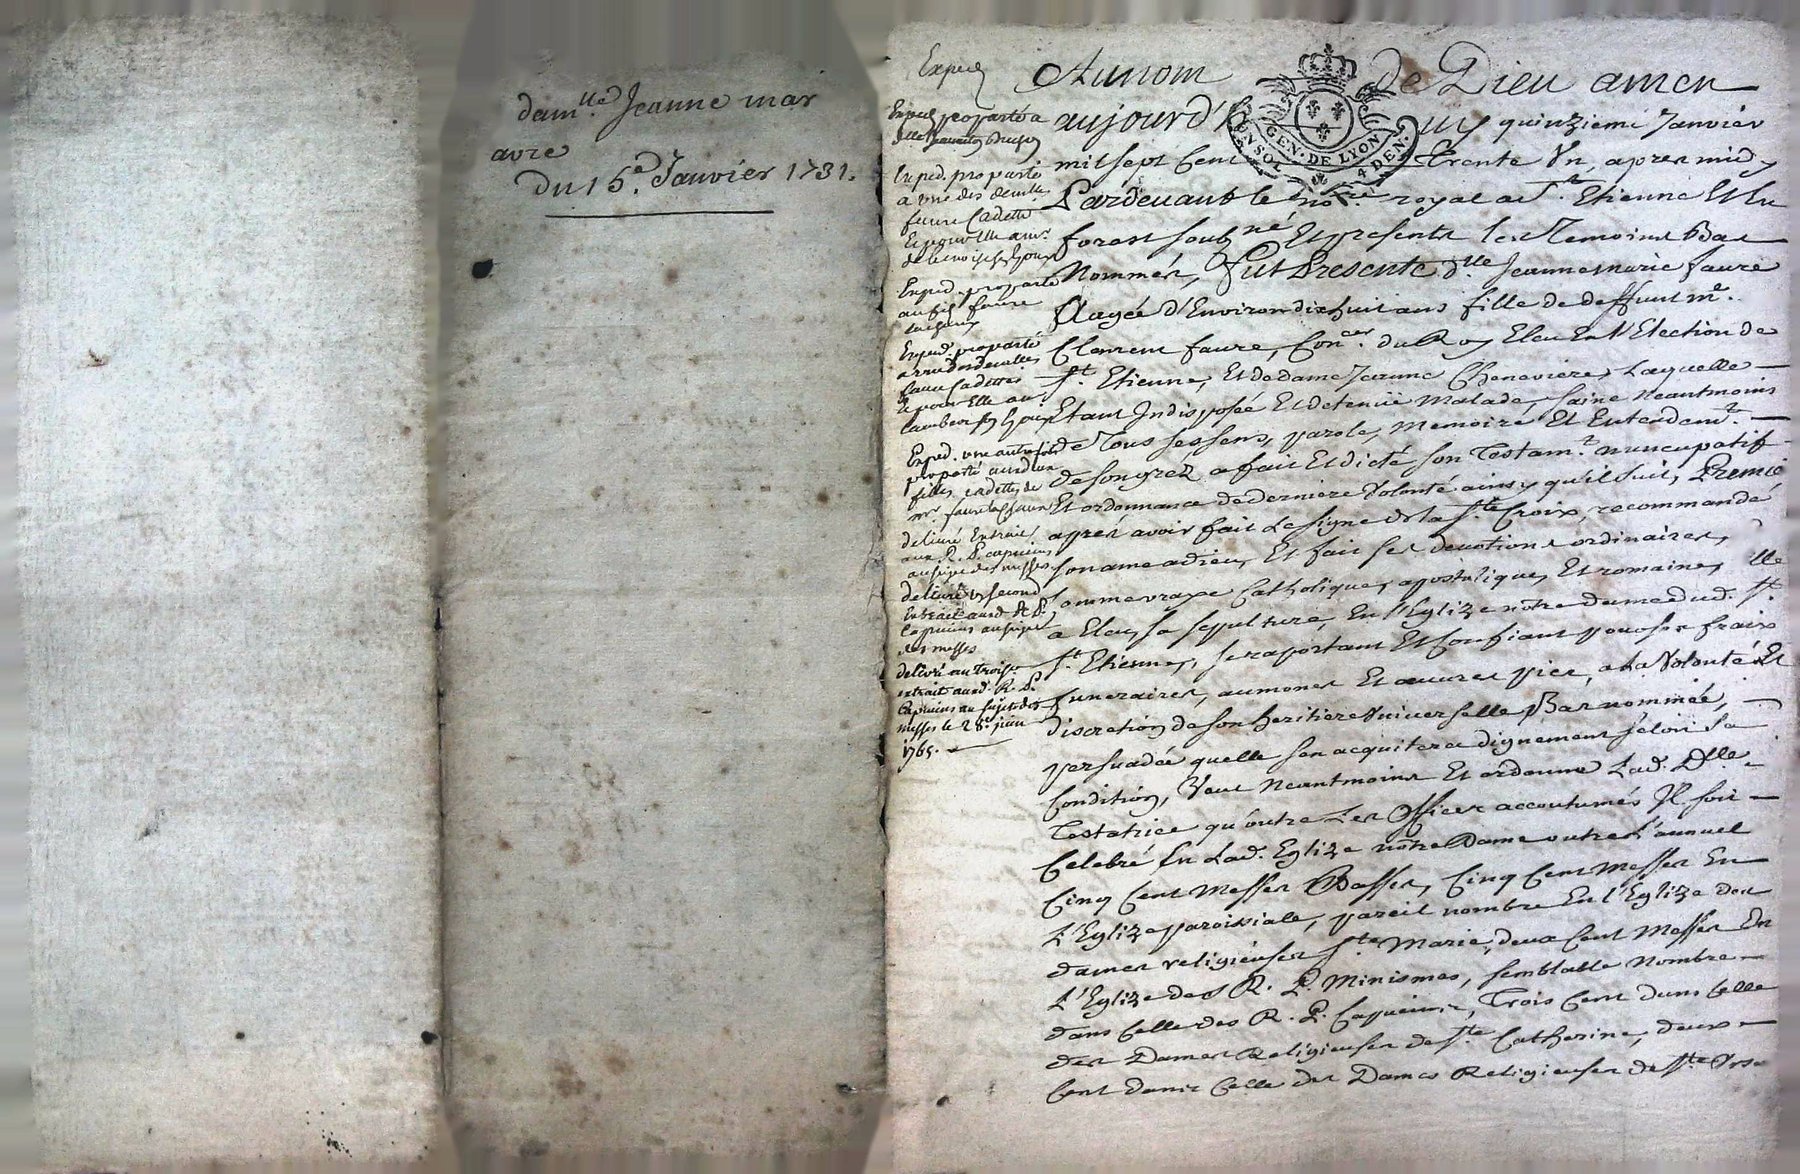 dam.lle Jeanne mar
avre
Du 15.e Janvier 1731.
Exped
Au nom de Dieu amen
aujourd'huy quinzieme Janvier
mil sept cent Trente Un, apres midy
Pardevant le no.re royal a S.t Etienne Et En
forest soub.né Et presents les Temoins Bas
Nommés, fut Presente d.lle Jeanne marie faure
Aagée d'Environ dix huit ans fille de deffunt m.e
Clement faure, Con.er du Roy Eleu En l'Election de
S.t Etienne, Et de dame Jeanne Cheneviere, Laquelle
Etant Indisposée Et detenüe Malade, saine Neantmoins
de Tous ses sens, parole, memoire Et Entendem.t
de son gréz a fait Et dicté son Testam.t nuncupatif
Et ordonnance de derniere Volonté ainsy qu'il suit, Premie
aprés avoir fait Le signe de la S.te Croix, recommandé
son ame a dieu, Et fait ses devotions ordinaires,
Comme vraye Catholique, apostolique, Et romaine, Elle
a Eleu sa sepulture, En l'Eglize nôtre dame dud. S.t
S.t Etienne, se raportant Et Confiant pour ses fraix
funeraires, aumones Et œuvres pies, a La Volonté Et
discretion de son heritiere Universelle Bas nommée,
persuadée quelle sen acquitera dignement selon sa
Condition, Veut Neantmoins Et ordonne Lad. Dlle
Testatrice qu'outre Les offices accoutumés Il soit
Celebré En Lad. Eglize nôtre Dame outre L'annuel
Cinq Cent Messes Basses, Cinq Cent Messes En
L'Eglize paroissiale, pareil nombre En l'Eglize des
dames religieuses S.te Marie, deux Cent Messes En
L'Eglize des R. P. Minismes, semblable Nombre
dans Celle des R. P. Capucins, Trois Cent dans Celle
des Dames Religieuses de S.te Catherine, deux
Cent dans Celle des Dames Religieuses de S.te Urse
GEN. DE LYON
4 DEN.
Exped. pro parte
a une des demlle
faure Cadette
Exped. pro parte
au fils faure
Exped. pro parte
faure Cadettes
Exped. une autre fois
pro parte
filles cadettes de
delivré Extrait
aux R. P. capucins
au sujet des messes
delivré Un second
Extrait aud. R. P.
Capucins au sujet
des messes
delivré un troise
extrait aud. R. P.
Capucins au sujet des
messes le 28.e juin
1765.